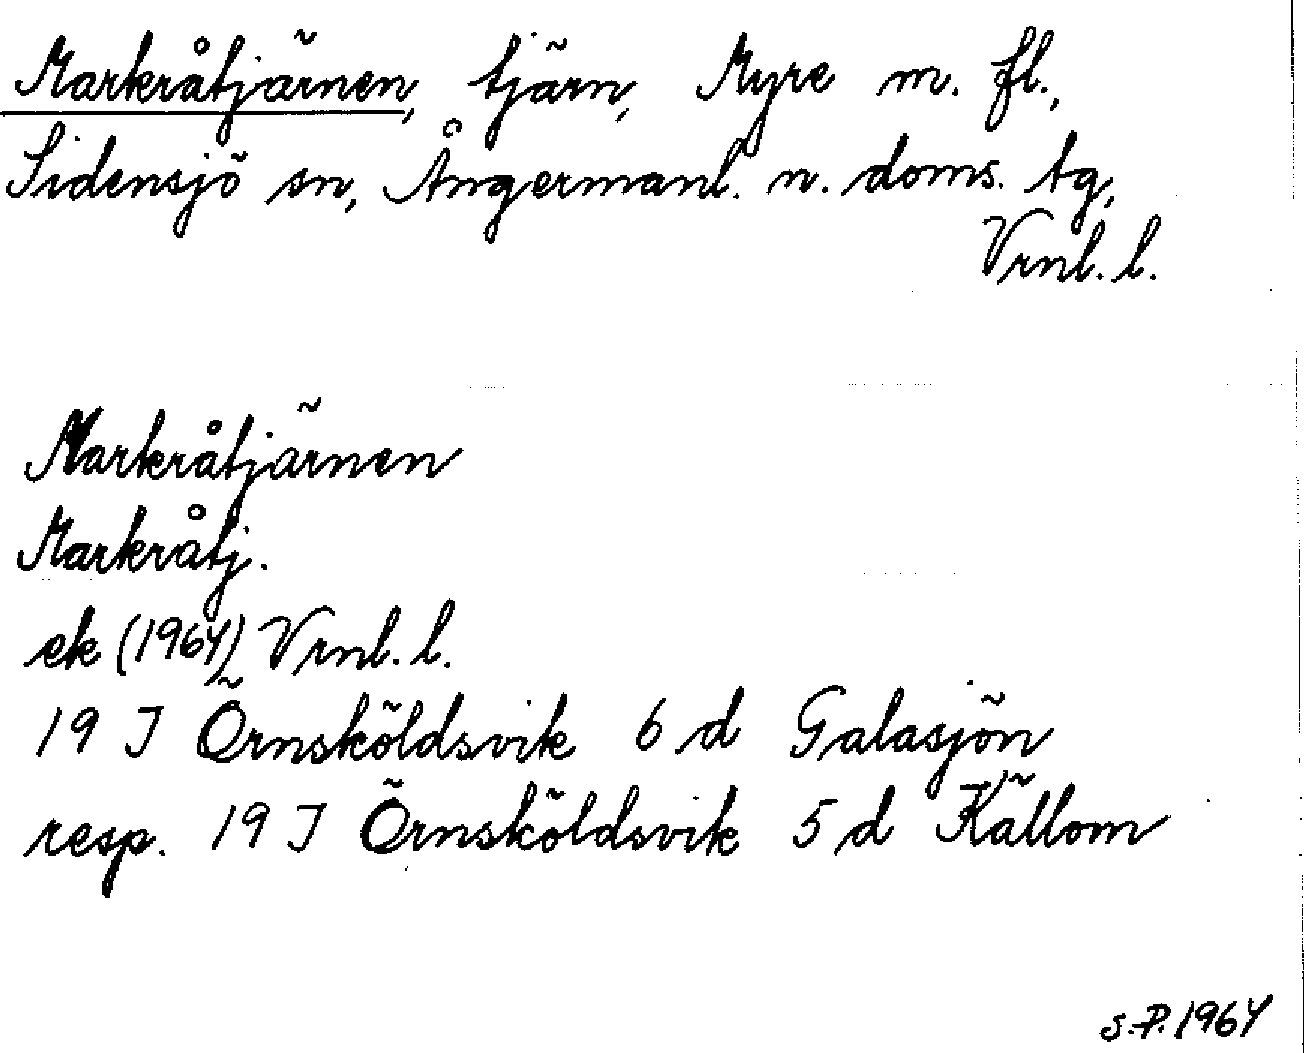 Markråtjärnen, tjärn, Myre m. fl.,
Sidensjö sn, Ångermanl. n. doms. tg,
Vrnl. l.
Markråtjärnen
Markråtj.
ek (1964) Vrnl. l.
19 J Örnsköldsvik 6 d Galasjön
resp. 19 J Örnsköldsvik 5 d Källom
S.P. 1964